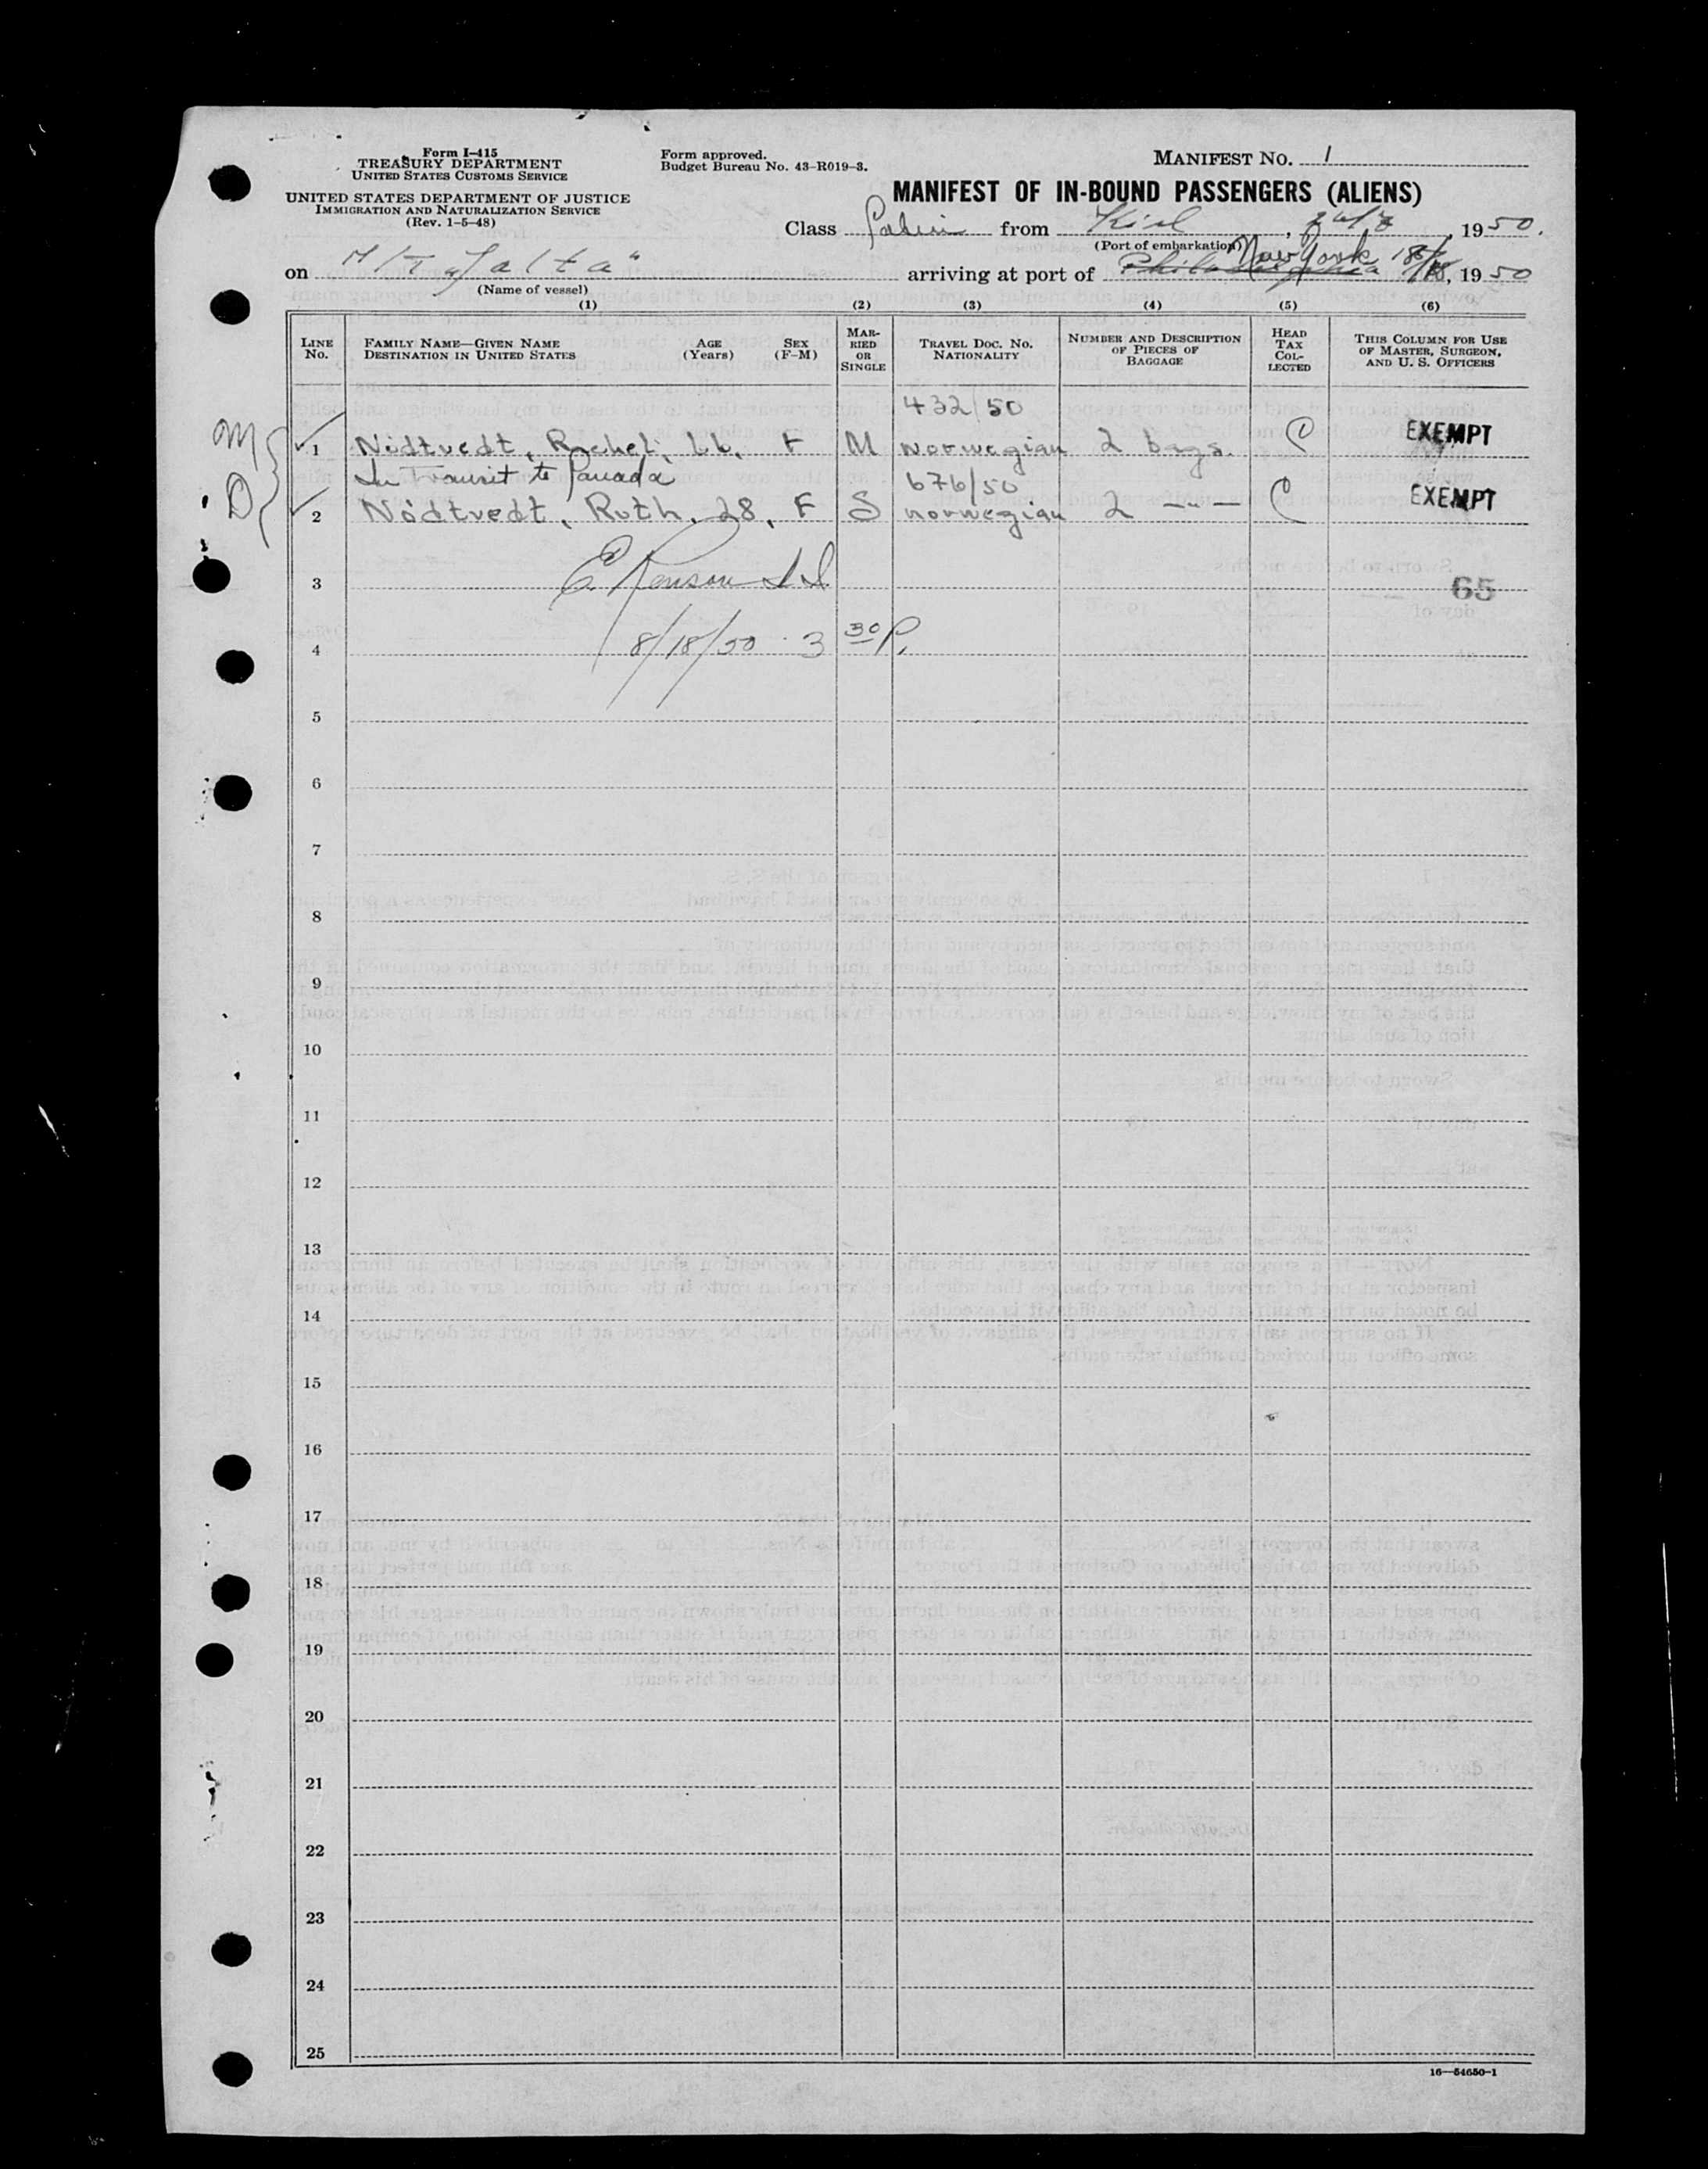 Form I-415
TREASURY DEPARTMENT
UNITED STATES CUSTOMS SERVICE
UNITED STATES DEPARTMENT OF JUSTICE
IMMIGRATION AND NATURALIZATION SERVICE
(Rev. 1-5-48)
Form approved.
Budget Bureau No. 43-R019-3.
MANIFEST NO. 1
MANIFEST OF IN-BOUND PASSENGERS (ALIENS)
Class Cabin from Kiel, 1950.
(Port of embarkation)
on M/T "Jalta" arriving at port of Philadelphia New York 18/8, 1950
(Name of vessel)
(1) (2) (3) (4) (5) (6)
LINE No. FAMILY NAME—GIVEN NAME DESTINATION IN UNITED STATES AGE (Years) SEX (F-M) MARRIED OR SINGLE TRAVEL DOC. NO. NATIONALITY NUMBER AND DESCRIPTION OF PIECES OF BAGGAGE HEAD TAX COLLECTED THIS COLUMN FOR USE OF MASTER, SURGEON, AND U. S. OFFICERS
432/50
M 1 Nödtvedt, Rachel, 66, F M Norwegian 2 bags. C EXEMPT
In Transit to Canada 676/50
D 2 Nödtvedt, Ruth, 28, F S Norwegian 2 -"- C EXEMPT
3 65
4 8/18/50 3 30 P.
5
6
7
8
9
10
11
12
13
14
15
16
17
18
19
20
21
22
23
24
25
16—54650-1